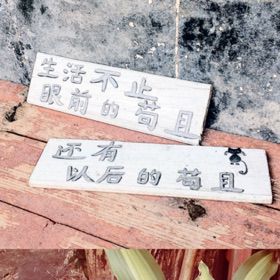 生活不止
眼前的苟且
还有
以后的苟且